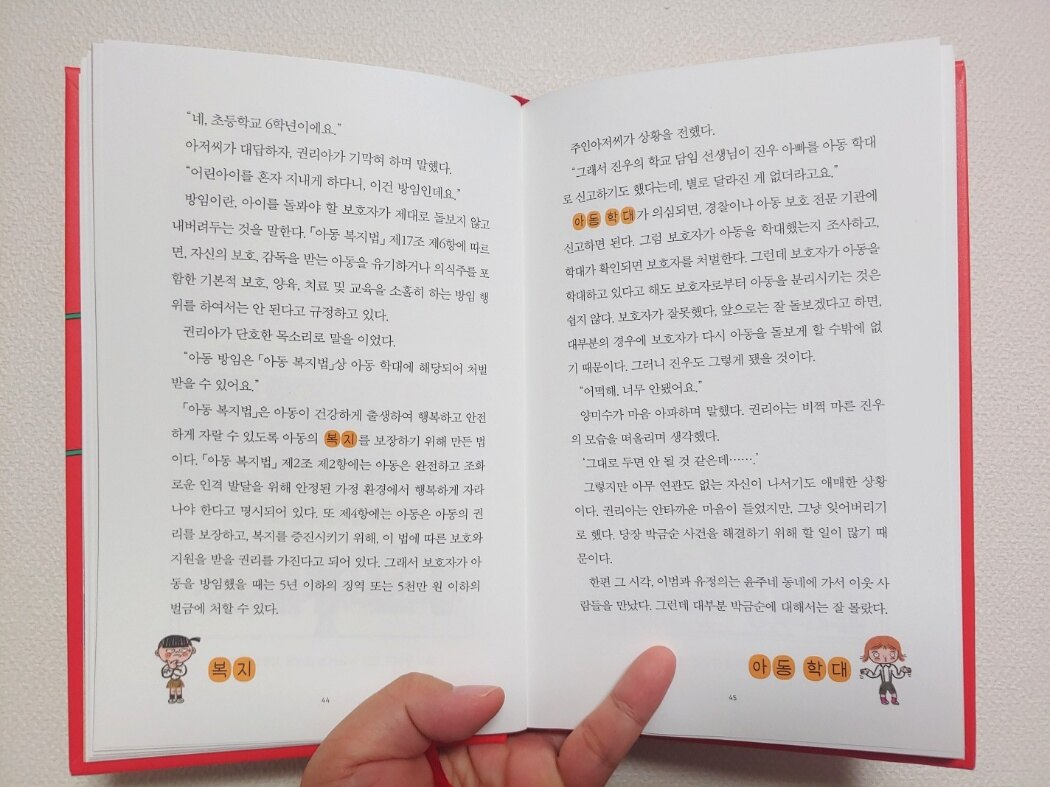 "네, 초등학교 6학년이에요."
아저씨가 대답하자, 권리아가 기막혀 하며 말했다.
"어린아이를 혼자 지내게 하다니, 이건 방임인데요."
방임이란, 아이를 돌봐야 할 보호자가 제대로 돌보지 않고
내버려두는 것을 말한다. 「아동 복지법」 제17조 제6항에 따르
면, 자신의 보호, 감독을 받는 아동을 유기하거나 의식주를 포
함한 기본적 보호, 양육, 치료 및 교육을 소홀히 하는 방임 행
위를 하여서는 안 된다고 규정하고 있다.
권리아가 단호한 목소리로 말을 이었다.
"아동 방임은 「아동 복지법」상 아동 학대에 해당되어 처벌
받을 수 있어요."
「아동 복지법」은 아동이 건강하게 출생하여 행복하고 안전
하게 자랄 수 있도록 아동의 복지를 보장하기 위해 만든 법
이다. 「아동 복지법」 제2조 제2항에는 아동은 완전하고 조화
로운 인격 발달을 위해 안정된 가정 환경에서 행복하게 자라
나야 한다고 명시되어 있다. 또 제4항에는 아동은 아동의 권
리를 보장하고, 복지를 증진시키기 위해, 이 법에 따른 보호와
지원을 받을 권리를 가진다고 되어 있다. 그래서 보호자가 아
동을 방임했을 때는 5년 이하의 징역 또는 5천만 원 이하의
벌금에 처할 수 있다.
복지
44
주인아저씨가 상황을 전했다.
"그래서 진우의 학교 담임 선생님이 진우 아빠를 아동 학대
로 신고하기도 했다는데, 별로 달라진 게 없더라고요."
아동 학대가 의심되면, 경찰이나 아동 보호 전문 기관에
신고하면 된다. 그럼 보호자가 아동을 학대했는지 조사하고,
학대가 확인되면 보호자를 처벌한다. 그런데 보호자가 아동을
학대하고 있다고 해도 보호자로부터 아동을 분리시키는 것은
쉽지 않다. 보호자가 잘못했다, 앞으로는 잘 돌보겠다고 하면,
대부분의 경우에 보호자가 다시 아동을 돌보게 할 수밖에 없
기 때문이다. 그러니 진우도 그렇게 됐을 것이다.
"어떡해, 너무 안됐어요."
양미수가 마음 아파하며 말했다. 권리아는 비쩍 마른 진우
의 모습을 떠올리며 생각했다.
'그대로 두면 안 될 것 같은데…….'
그렇지만 아무 연관도 없는 자신이 나서기도 애매한 상황
이다. 권리아는 안타까운 마음이 들었지만, 그냥 잊어버리기
로 했다. 당장 박금순 사건을 해결하기 위해 할 일이 많기 때
문이다.
한편 그 시각, 이범과 유정의는 윤주네 동네에 가서 이웃 사
람들을 만났다. 그런데 대부분 박금순에 대해서는 잘 몰랐다.
아동 학대
45